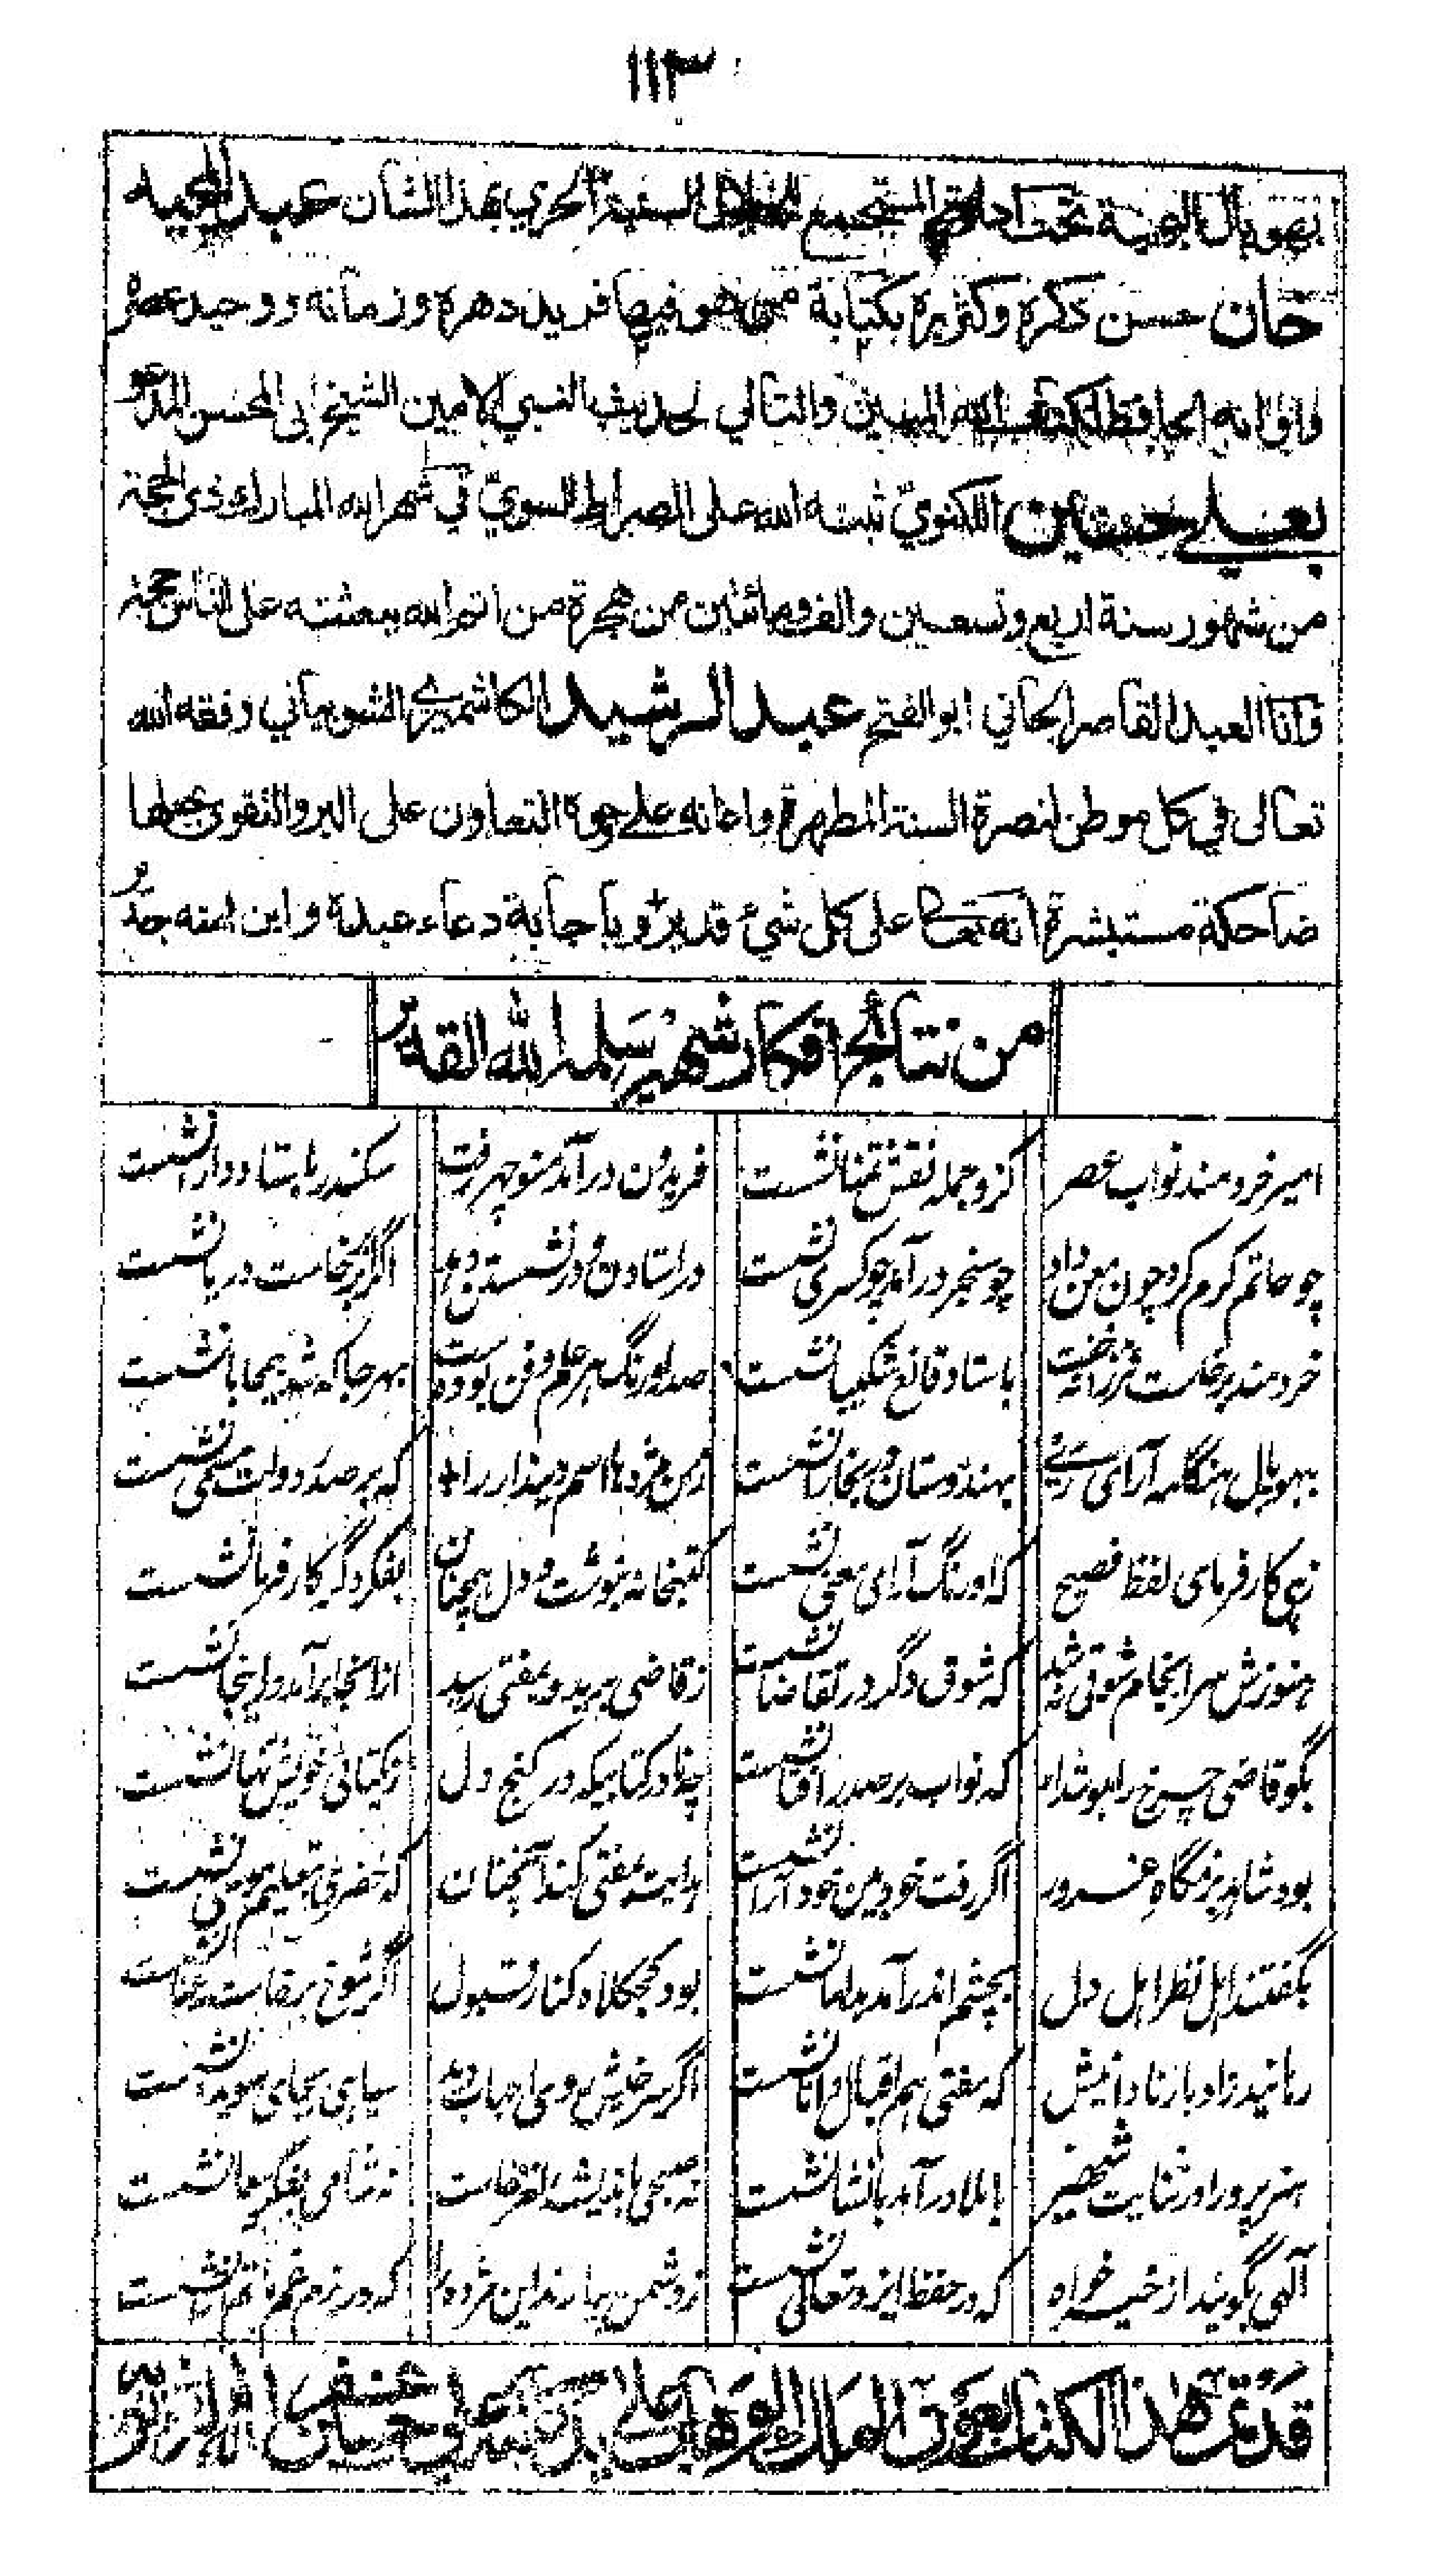 ١١٣
بهوپال المحمية تحت ادارة المستجمع السنية الحري بهذا الشان عبد المجيد
خان حسن ذكره وكثر بره بكتابة من هو فيها فريد دهره وزمانه ووحيد عصره
واوانه الحافظ لكتاب الله المبين والتالي لحديث النبي الامين الشيخ ابي المحسن المدعو
بعلي حسين اللكنوي ثبته الله على الصراط السوي في شهر الله المبارك ذى الحجة
من شهور سنة اربع وتسعين والف ومائتين من هجرة من اتم الله ببعثته على الناس حجته
وانا العبد القاصر الجاني ابو الفتح عبد الرشيد الكاشميري الشوپياني وفقه الله
تعالى في كل موطن لنصرة السنة المطهرة واعانه على التعاون على البر والتقوى
ضاحكة مستبشرة انه تعالى على كل شيء قدير وباجابة دعاء عبده وابن امته جدير
من نتائج افكار شهير سلمه الله القدير
امير خردمند نواب عصر كزو جمله نقش تمنا نشست فريدون درآمد منوچهر رفت سكندر باستاد و دارا نشست
چو حاتم كرم كرد چون معن داد چو سنجر درآمد چو كسرى نشست در استادن و در نشستن اگر بر نخاست دريا نشست
خردمند برخاست فرزانه باستاد قانع شكيبا نشست صد اورنگ هر علم و فن بوده است بهر جا كه شد بيمحابا نشست
بهوپال هنگامه آراى بهندوستان و بخارا نشست ز من مژده ها اسم ديندار را كه بر صدر دولت مسمى نشست
زهى كارفرماى لفظ فصيح كه اورنگ آراى معنى نشست كتبخانه بنوشت و دل همچنان بفكر دگر كارفرما نشست
هنوزش سرانجام شوقى كه شوق دگر در تقاضا نشست ز قاضى بريد و بمفتى رسيد از آنجا برآمد و اينجا نشست
بگو قاضى چرخ را كه نواب بر صدر افتا نشست چه نادر كتابيكه در كنج دل ز يكتائى خويش تنها نشست
بود شاهد بزمگاه غرور اگر رفت خودبين خودآرا نشست هدايت بمفتى كند آنچنان كه خضرى بتعليم موسى نشست
بگفتند اهل نظر اهل دل بچشم اندر آمد بدلها نشست بود كجكلاه كنار قبول اگر شوخ برخاست رعنا نشست
كه مفتى هم اقبال دانا نشست سپاهى بجاى سويدا نشست
هنرپرور در ثنايت شهير باملا درآمد بانشا نشست نه صبحى باندیشه لغز خاست نه شامى بفكر معما نشست
آلهى بگويند از خير خواه كه در حفظ ايزد تعالى نشست ز دشمن بيارند اين مژده ام كه در بزم غم ماتم آرا نشست
قد تم هذا الكتاب بعون الملك الوهاب على يد علي حسين